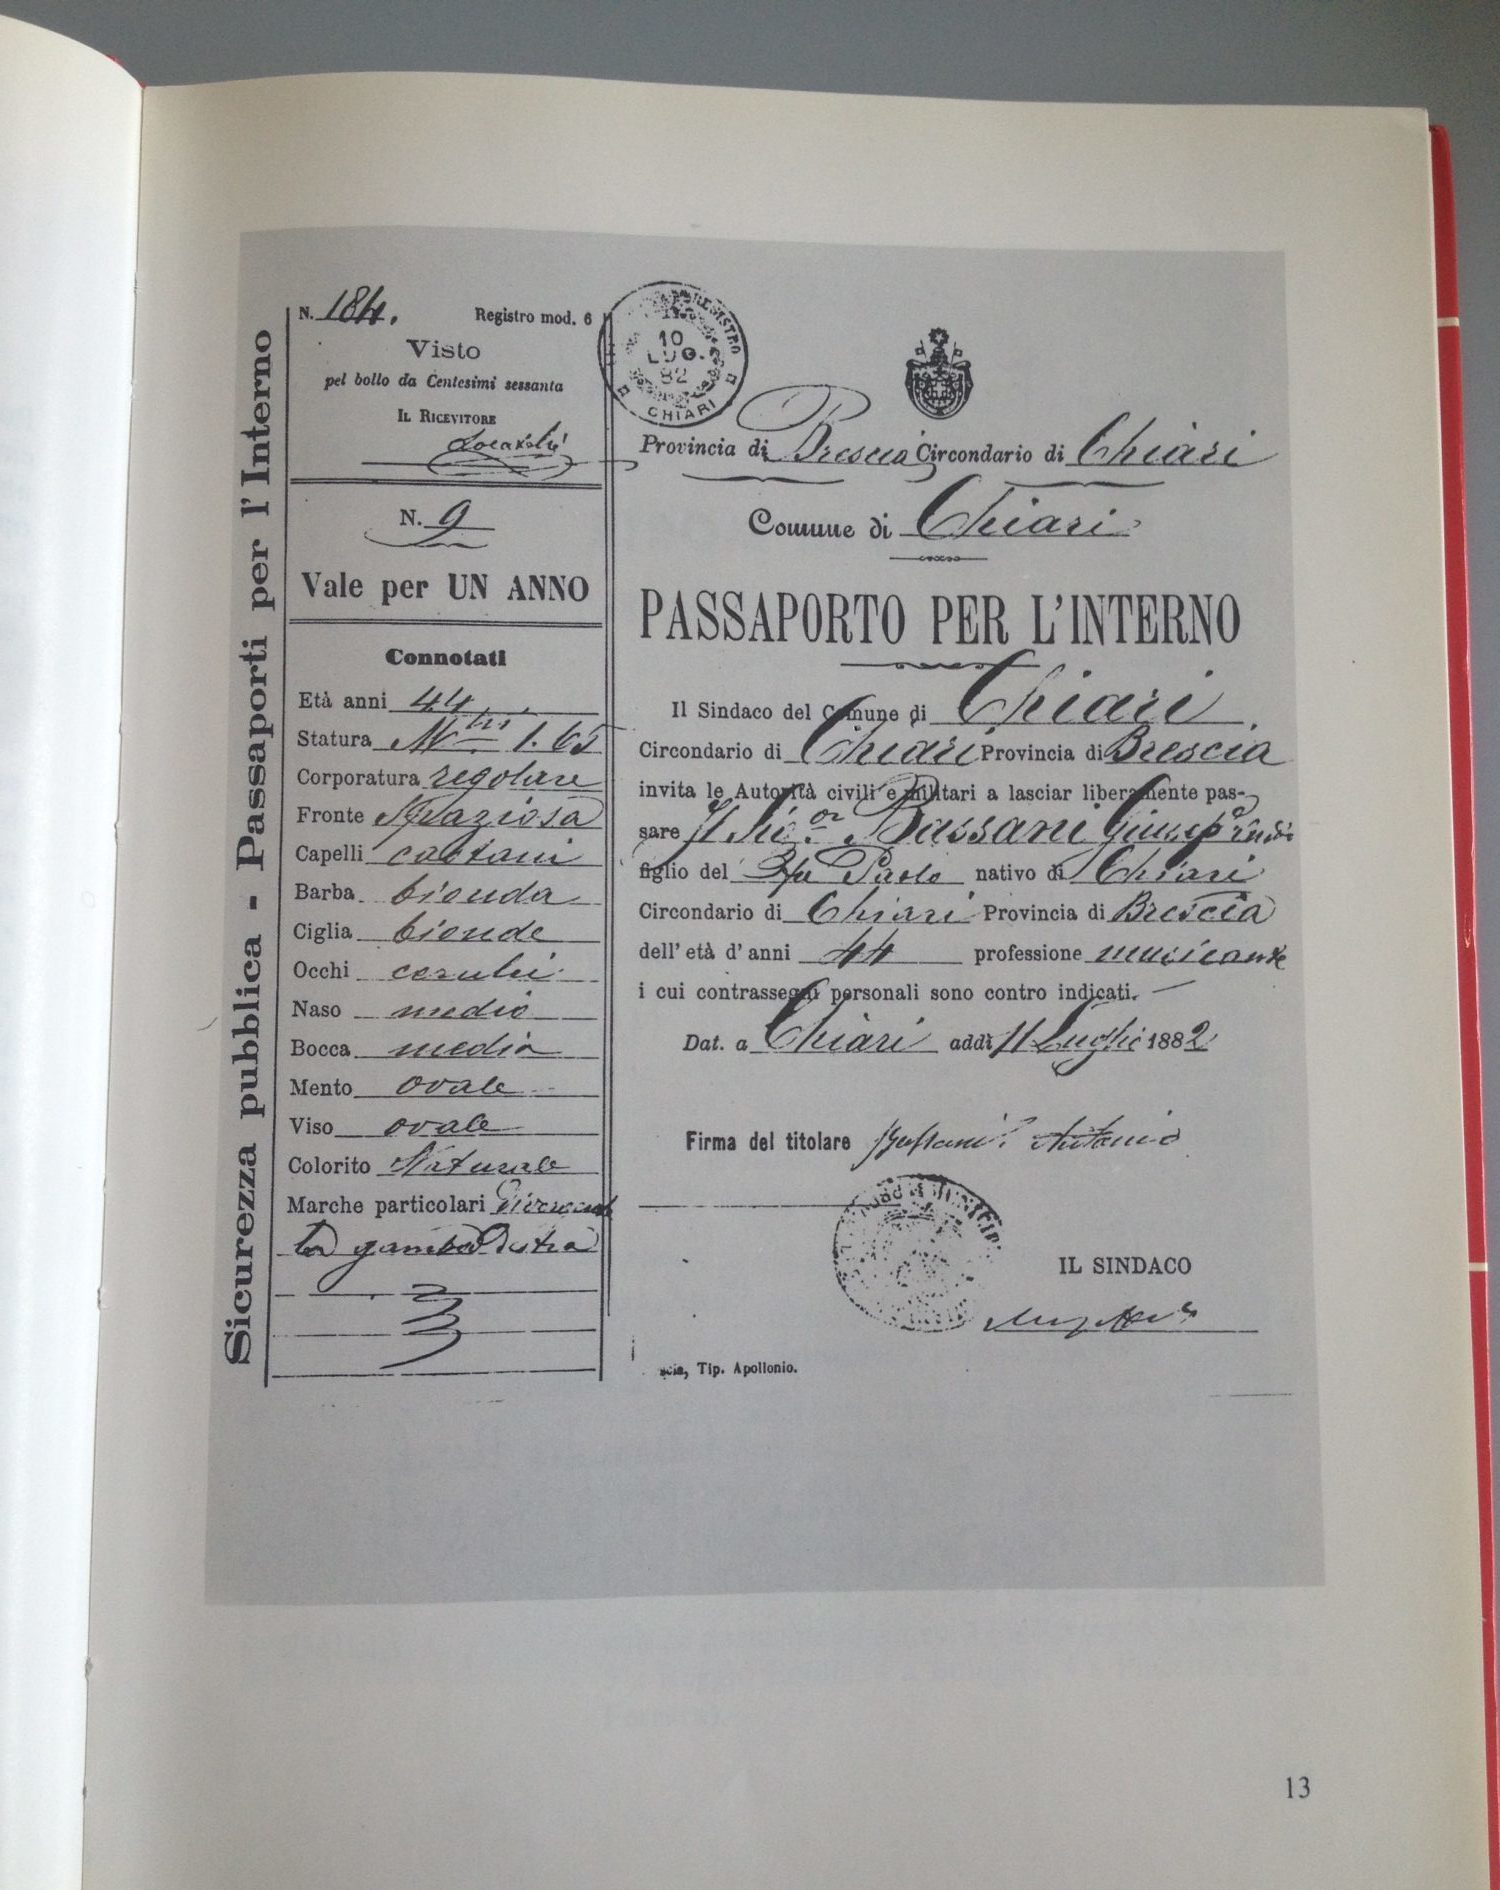 Sicurezza pubblica - Passaporti per l'Interno
N. 184.
Registro mod. 6
Visto
pel bollo da Centesimi sessanta
IL RICEVITORE
N. 9
Vale per UN ANNO
Connotati
Età anni 44
Statura Mtri 1.65
Corporatura regolare
Fronte Spaziosa
Capelli castani
Barba bionda
Ciglia bionde
Occhi cerulei
Naso medio
Bocca media
Mento ovale
Viso ovale
Colorito Naturale
Marche particolari
la gamba destra
REGISTRO
10
LUG.
82
CHIARI
Provincia di Brescia Circondario di Chiari
Comune di Chiari
PASSAPORTO PER L'INTERNO
Il Sindaco del Comune di Chiari
Circondario di Chiari Provincia di Brescia
invita le Autorità civili e militari a lasciar liberamente pas-
sare Il Sigor Bassani
figlio del Paolo nativo di Chiari
Circondario di Chiari Provincia di Brescia
dell' età d' anni 44 professione musicante
i cui contrassegni personali sono contro indicati.
Dat. a Chiari addì 11 Luglio 1882
Firma del titolare Bassani Antonio
IL SINDACO
scia, Tip. Apollonio.
13